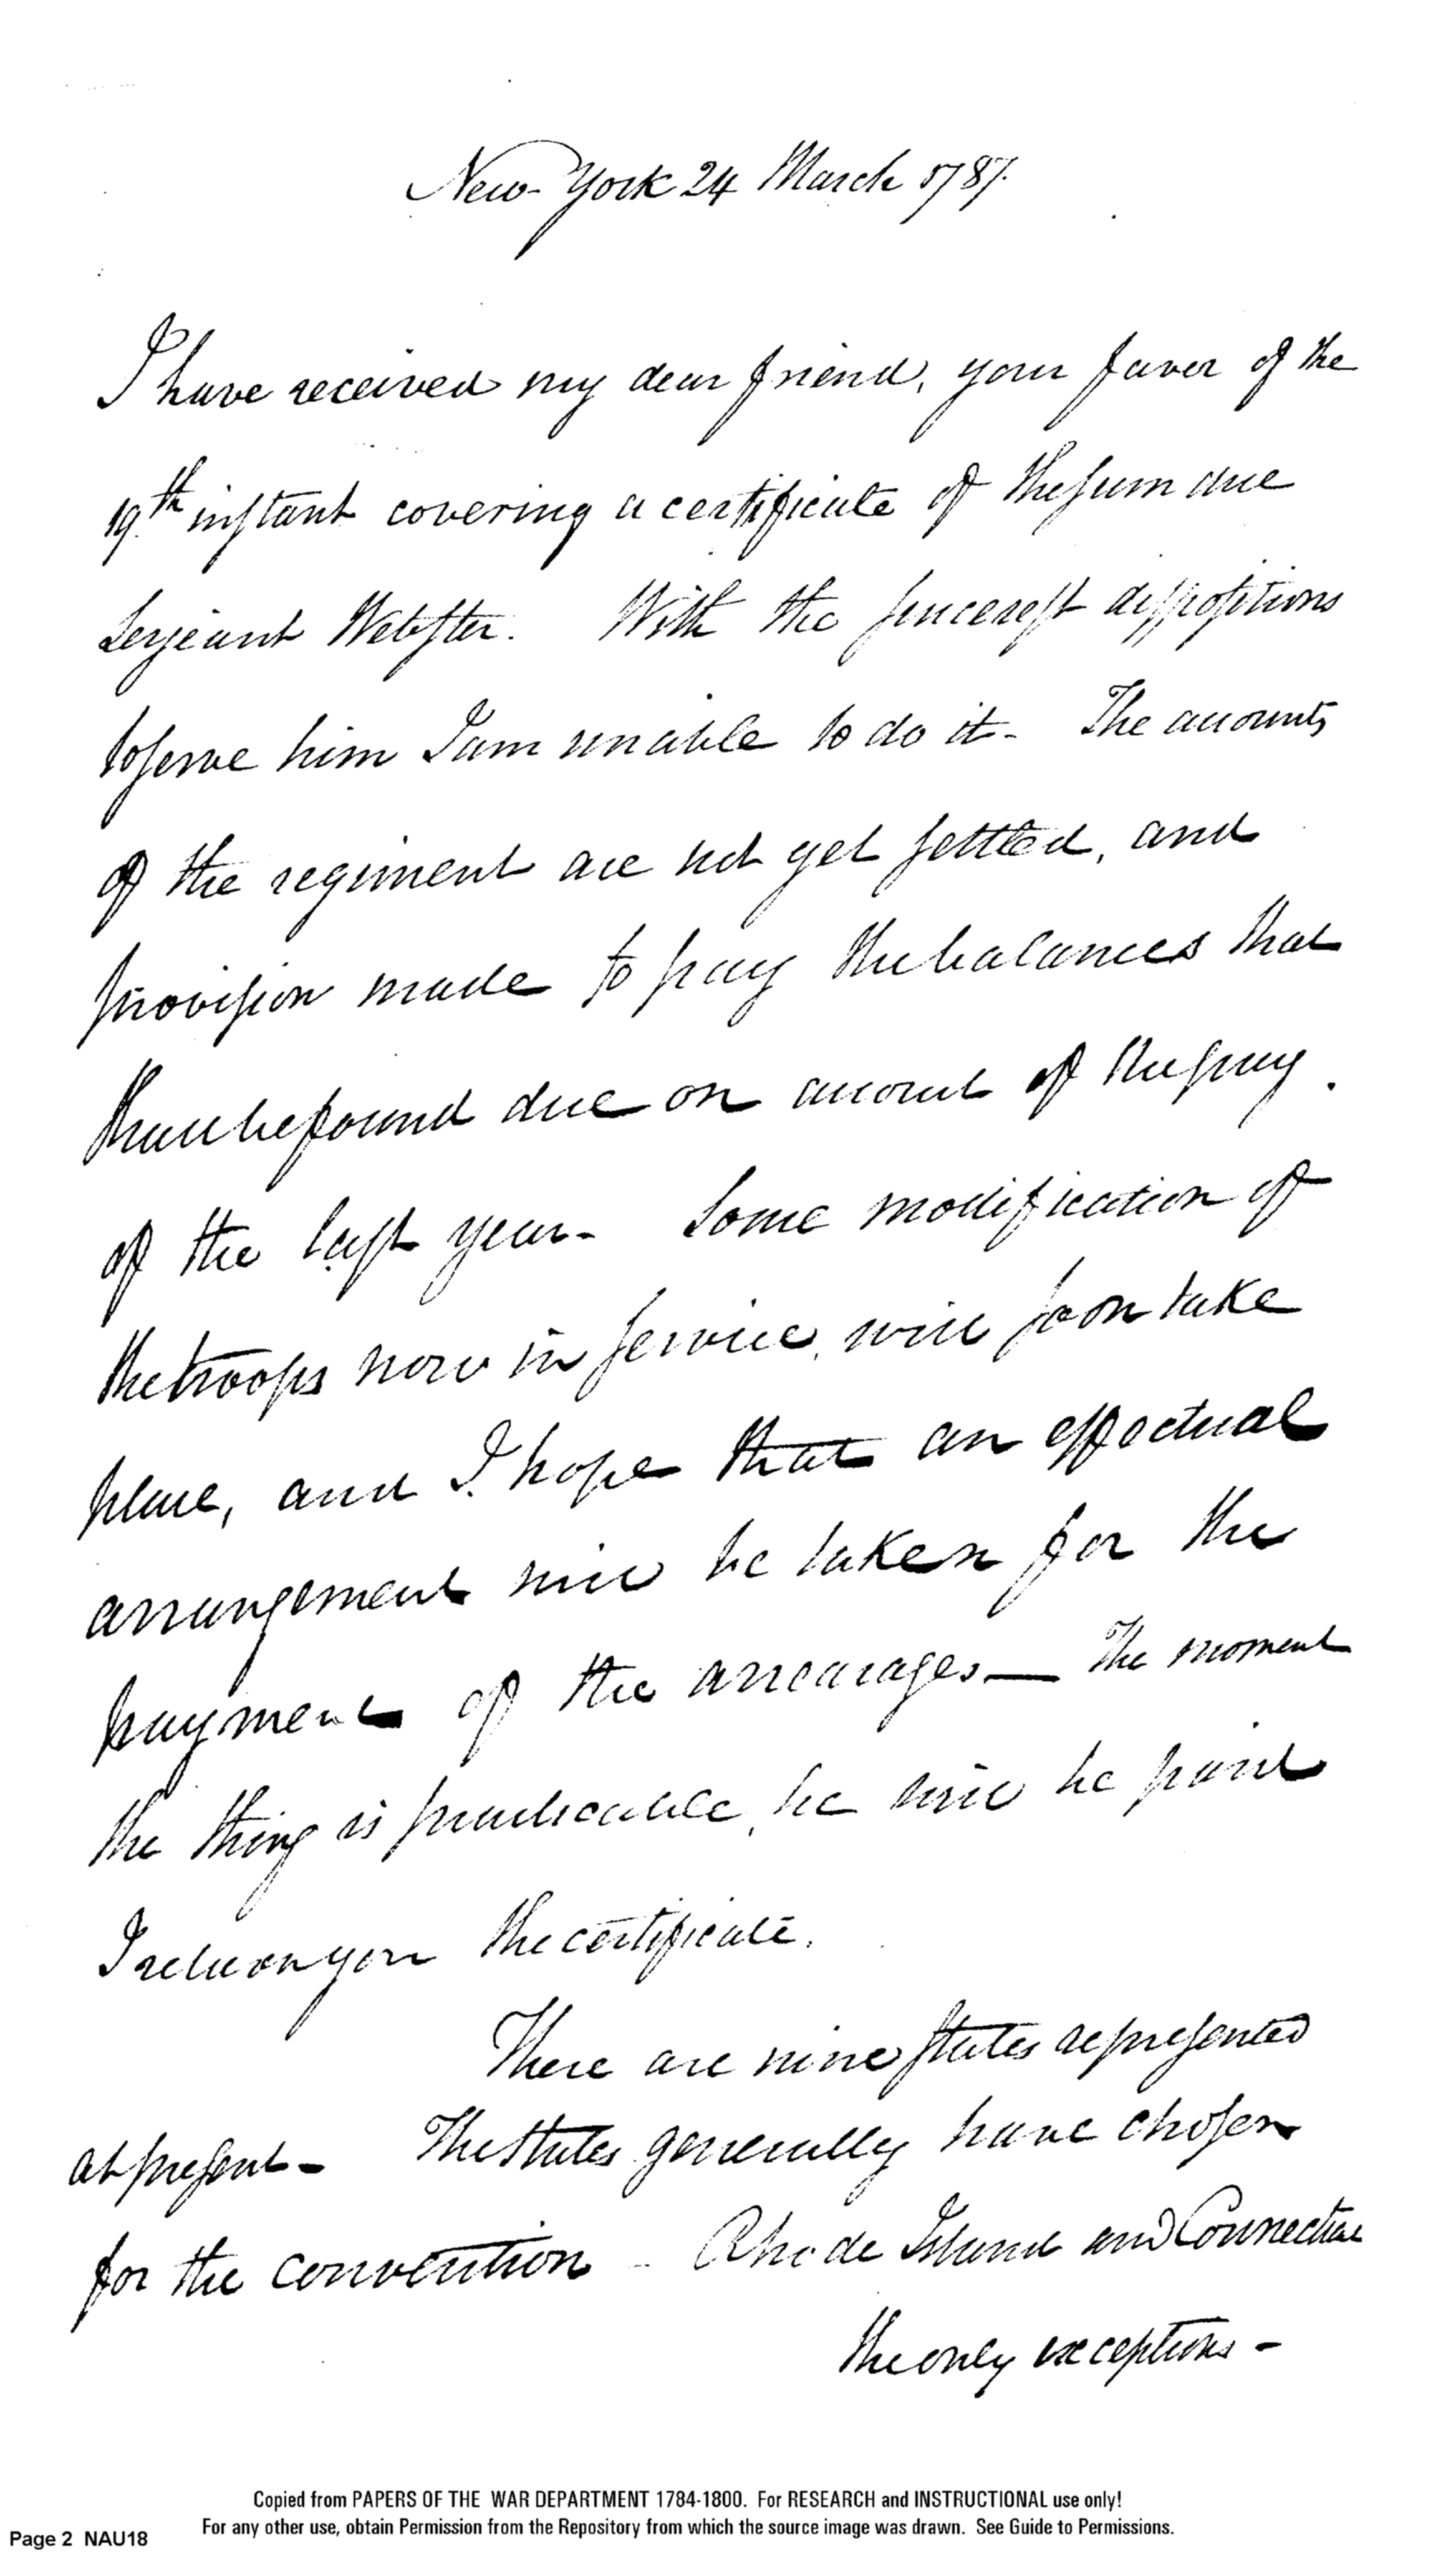 New-York 24 March 1787.
I have received my dear friend, your favor of the
19th instant covering a certificate of the sum due
Serjeant Webster. With the sincerest dispositions
to serve him I am unable to do it - The accounts
of the regiment are not yet settled, and
provision made to pay the balances that
shall be found due on account of the pay
of the last year - Some modification of
the troops now in service, will soon take
place, and I hope that an effectual
arrangement will be taken for the
payment of the arrearages — The moment
the thing is practicable, he will be paid
I return you the certificate.
There are nine states represented
at present - The States generally have chosen
for the convention - Rhode Island and Connecticut
the only exceptions -
Copied from PAPERS OF THE WAR DEPARTMENT 1784-1800. For RESEARCH and INSTRUCTIONAL use only!
For any other use, obtain Permission from the Repository from which the source image was drawn. See Guide to Permissions.
Page 2 NAU18